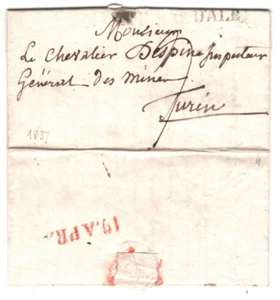 DALE
Monsieur
Le Chevalier Despine Inspecteur
Général des mines
Turin
1837
19. APR.